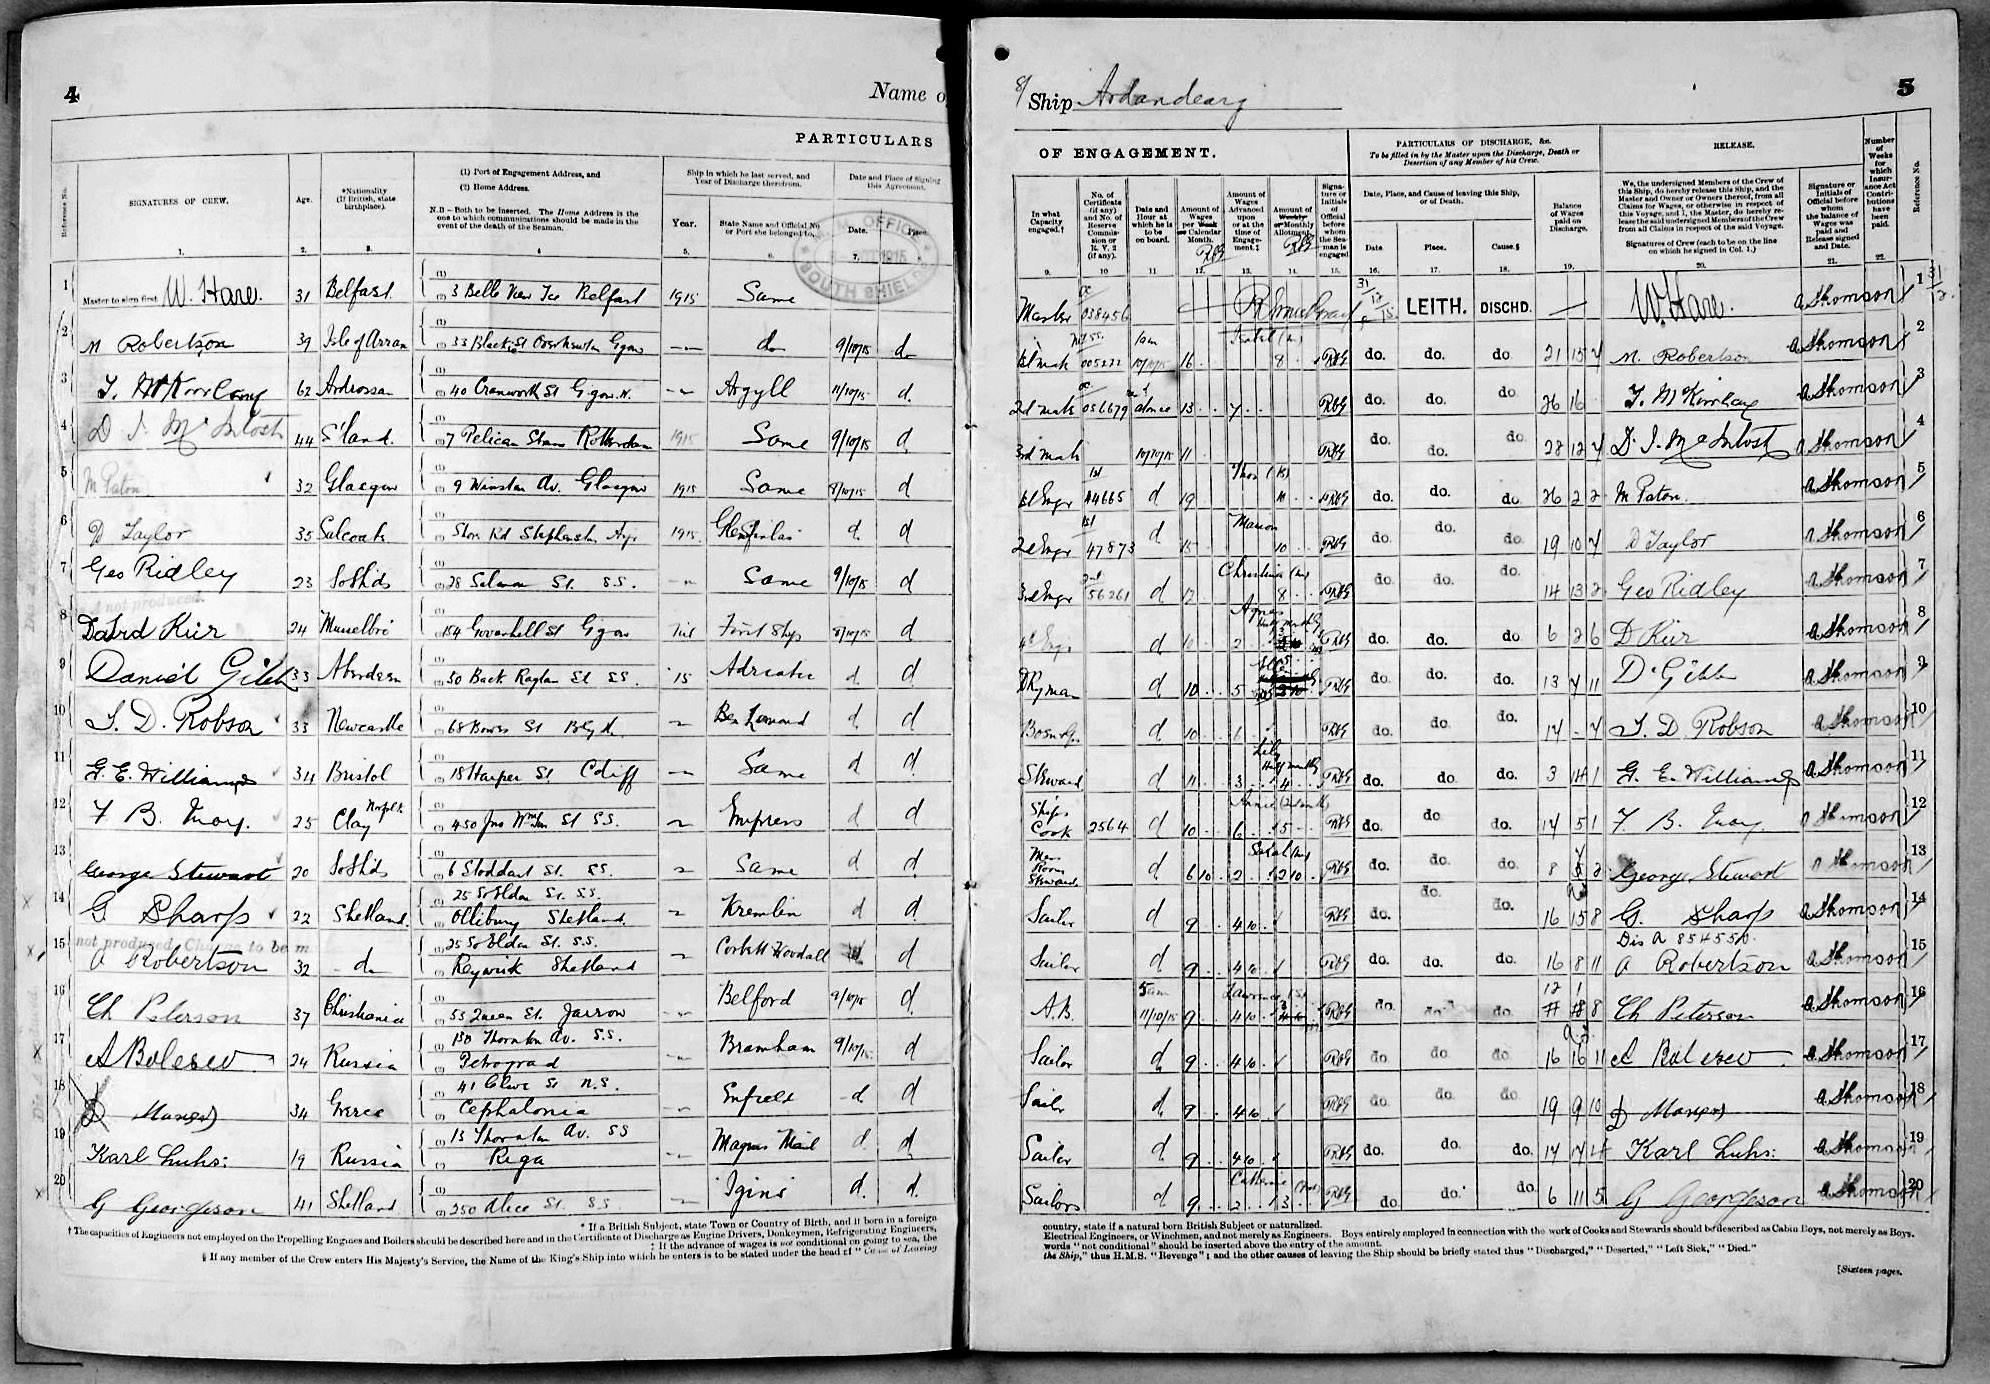 4
Name o
PARTICULARS
Reference No.
SIGNATURES OF CREW.
Age.
*Nationality
(If British, state
birthplace).
(1) Port of Engagement Address, and
(2) Home Address.
N.B—Both to be inserted. The Home Address is the
one to which communications should be made in the
event of the death of the Seaman.
Ship in which he last served, and
Year of Discharge therefrom.
Year.
State Name and Official No
or Port she belonged to.
Date and Place of Signing
this Agreement.
Date.
Place.
M.M. OFFICE
1915
SOUTH SHIELDS
1. 2. 3. 4 5. 6. 7.
1 Master to sign first W. Hare. 31 Belfast. 3 Belle Vue Tce Belfast 1915 Same
2 N Robertson 39 Isle of Arran 9/10/15
3 62 Ardrossan 40 Cranworth St Argyll 11/10/15 d.
4 D. J. McIntosh 44 7 Pelican Rotterdam 1915 Same 9/10/15 d
5 M Paton 32 Glasgow 9 Winston Av. Glasgow 1915 Same 8/10/15 d
6 D Taylor 35 Salcoats 1915. d. d
7 Geo Ridley 23 So Shds 28 Salmon St. S.S. Same 9/10/15 d
not produced.
8 David Kier 24 154 Govanhill St First Ship 8/10/15 d
9 Daniel Gibb 33 Aberdeen 50 Back Raglan St S.S. 15 Adriatic d d
10 J. D. Robson 33 Newcastle 68 Bowes St Blyth. Ben Lomond d d
11 G. E. Williams 34 Bristol 18 Harper St. Cdiff Same d d
12 F B. 25 Clay Norfolk St S.S. Empress d d
13 George Stewart 20 So Shds 6 Stoddart St. S.S. Same d d
14 G Sharp 22 Shetland. St. S.S.
Shetland. Kremlin d d
not produced. Charge to be m
15 A Robertson 32 do St. S.S.
Shetland Corbett Woodall d
16 Ch Peterson 37 Christiania 53 Queen St. Jarrow Belford 9/10/15 d.
17 24 Russia 130 Thornton Av. S.S.
Petrograd Bramham 9/10/15 d
18 34 Greece 41 Clive St N.S.
Cephalonia d d
19 Karl Luhs: 19 Russia 13 Thornton Av. S.S
Riga d d
20 G Georgeson 41 Shetland 250 Alice St. S.S d. d.
* If a British Subject, state Town or Country of Birth, and if born in a foreign
† The capacities of Engineers not employed on the Propelling Engines and Boilers should be described here and in the Certificate of Discharge as Engine Drivers, Donkeymen, Refrigerating Engineers,
‡ If the advance of wages is not conditional on going to sea, the
§ If any member of the Crew enters His Majesty's Service, the Name of the King's Ship into which he enters is to be stated under the head of "Cause of Leaving
Ship Ardandearg
5
OF ENGAGEMENT.
PARTICULARS OF DISCHARGE, &c.
To be filled in by the Master upon the Discharge, Death or
Desertion of any Member of his Crew.
RELEASE.
In what
Capacity
engaged.†
No. of
Certificate
(if any)
and No. of
Reserve
Commis-
sion or
R. V. 2
(if any).
Date and
Hour at
which he is
to be
on board.
Amount of
Wages
per Week
or Calendar
Month.
Amount of
Wages
Advanced
upon
or at the
time of
Engage-
ment.‡
Amount of
Weekly
or Monthly
Allotment.
Signa-
ture or
Initials
of
Official
before
whom
the Sea-
man is
engaged
Date, Place, and Cause of leaving this Ship,
or of Death.
Date
Place.
Cause.§
Balance
of Wages
paid on
Discharge.
We, the undersigned Members of the Crew of
this Ship, do hereby release this Ship, and the
Master and Owner or Owners thereof, from all
Claims for Wages, or otherwise in respect of
this Voyage, and I, the Master, do hereby re-
lease the said undersigned Members of the Crew
from all Claims in respect of the said Voyage.
Signatures of Crew (each to be on the line
on which he signed in Col. 1.)
Signature or
Initials of
Official before
whom
the balance of
Wages was
paid and
Release signed
and Date.
Number
of
Weeks
for
which
Insur-
ance Act
Contri-
butions
have
been
paid.
Reference No.
9. 10 11 12. 13. 14. 15. 16. 17. 18. 19. 20. 21. 22.
Master 038456 31/12/15 LEITH. DISCHD. W. Hare. A Thomson 1
1st mate 005222 10/10/15 16 8 do. do. do. 21 15 4 N. Robertson A Thomson 2
2d mate 056679 at once 13 do. do. do. 26 16 A Thomson 3
3rd mate 10/10/15 11 do. do. do. 28 12 4 D. J. McIntosh A Thomson 4
1st Engr 44665 d 19 do. do. do. 26 2 2 M Paton. A Thomson 5
2d Engr 1st 47873 d 15 Marion 10 do. do. do. 19 10 4 D Taylor A Thomson 6
3rd Engr 2nd 56261 d 12 Christina 8 do. do. do. 14 13 2 Geo Ridley A Thomson 7
4th Engr d 2 Agnes do. do. do. 6 2 6 D Kier A Thomson 8
d 10 5 do. do. do. 13 4 11 D. Gibb A Thomson 9
d 10 do. do. do. 14 - 4 J. D. Robson A Thomson 10
Steward d 11 3 Lily 4 do. do. do. 3 14 1 G. E. Williams A Thomson 11
Ships
Cook 2564 d 10 6 5 do. do. do. 14 5 1 F B. A Thomson 12
Mess
Room
Steward d 6 10 2 2 10 do. do. do. 8 2 George Stewart A Thomson 13
Sailor d 9 4 10 do. do. do. 16 15 8 G. Sharp A Thomson 14
Dis A 854550.
Sailor d 9 4 10 do. do. do. 16 8 11 A Robertson A Thomson 15
A.B. 5 am 11/10/15 9 4 10 do. do. do. 12 1 8 Ch Peterson A Thomson 16
Sailor d 9 4 10 do. do. do. 16 16 11 A Thomson 17
Sailor d 9 4 10 do. do. do. 19 9 10 A Thomson 18
Sailor d 9 4 10 do. do. do. 14 Karl Luhs: A Thomson 19
Sailor d 9 2 Catherine 3 do. do. do. 6 11 5 G Georgeson A Thomson 20
country, state if a natural born British Subject or naturalized.
Electrical Engineers, or Winchmen, and not merely as Engineers. Boys entirely employed in connection with the work of Cooks and Stewards should be described as Cabin Boys, not merely as Boys.
words "not conditional" should be inserted above the entry of the amount.
the Ship," thus H.M.S. "Revenge"; and the other causes of leaving the Ship should be briefly stated thus "Discharged," "Deserted," "Left Sick," "Died."
[Sixteen pages.